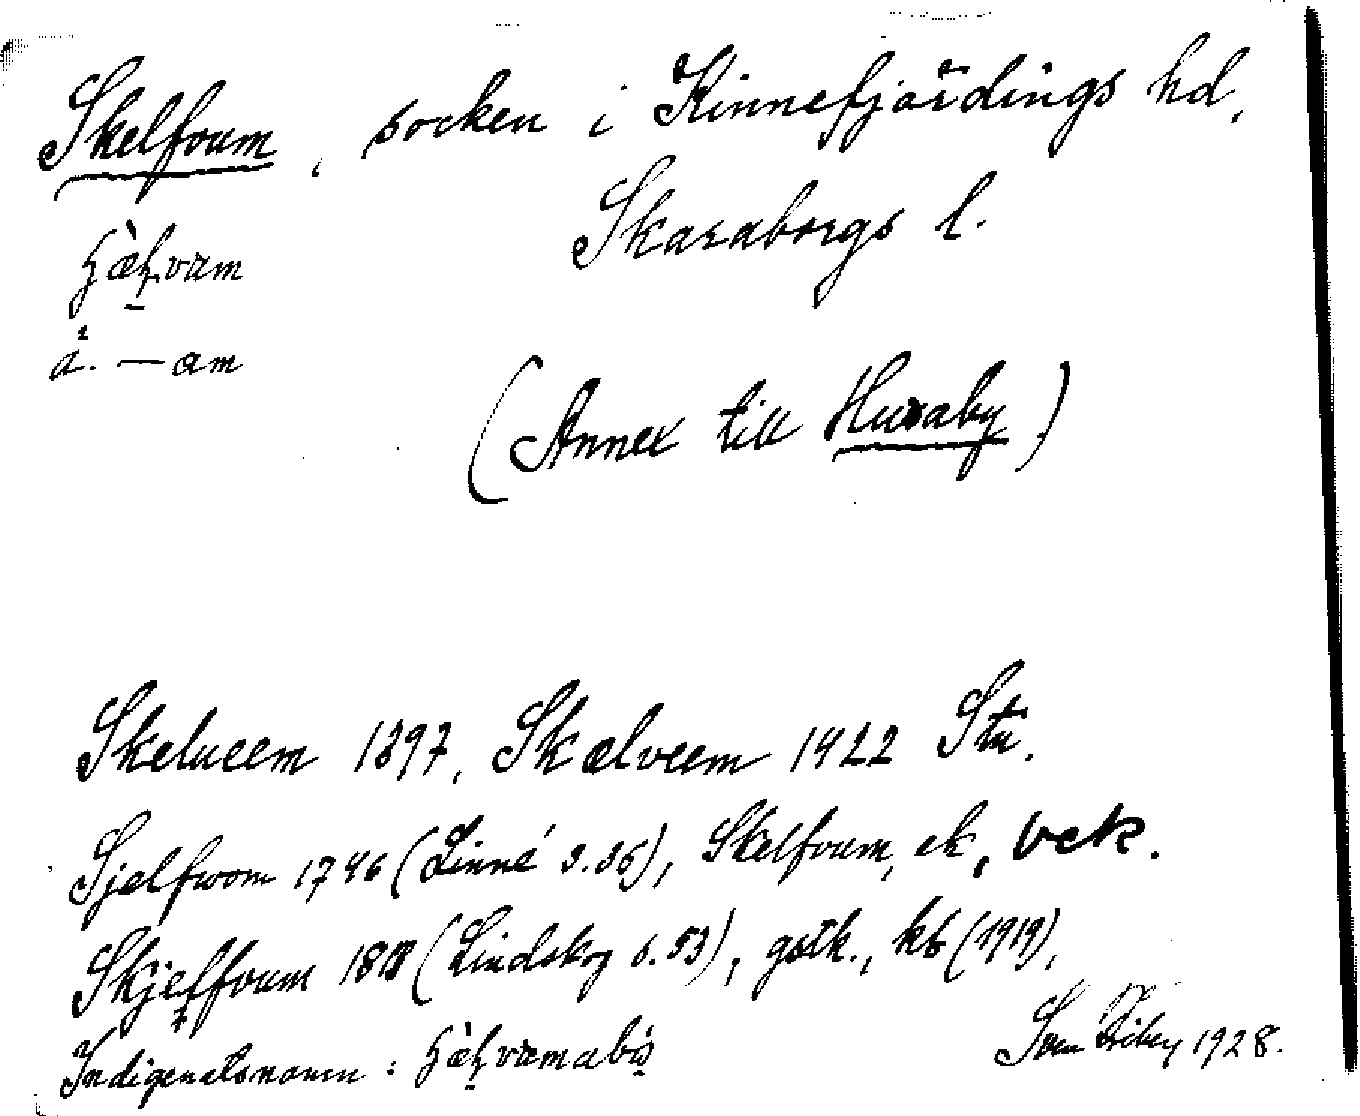 Skelfvum, socken i Kinnefjärdings hd,
Skaraborgs l.
å. — am
(Annex till Husaby)
Skelueem 1397, Skælveem 1422 Sth.
Sjelfwom 1746 (Linné s. 36), Skelfvum, ek, vek.
Skjelfvum 1818 (Lindskog s. 53), gstk., kb (1919),
Indigenatsnamn :
Sven 1928.